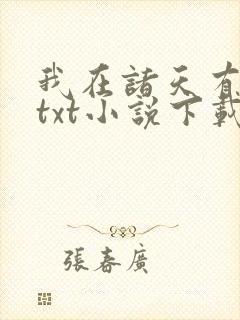 我在諸天有
txt小說下載
張春廣